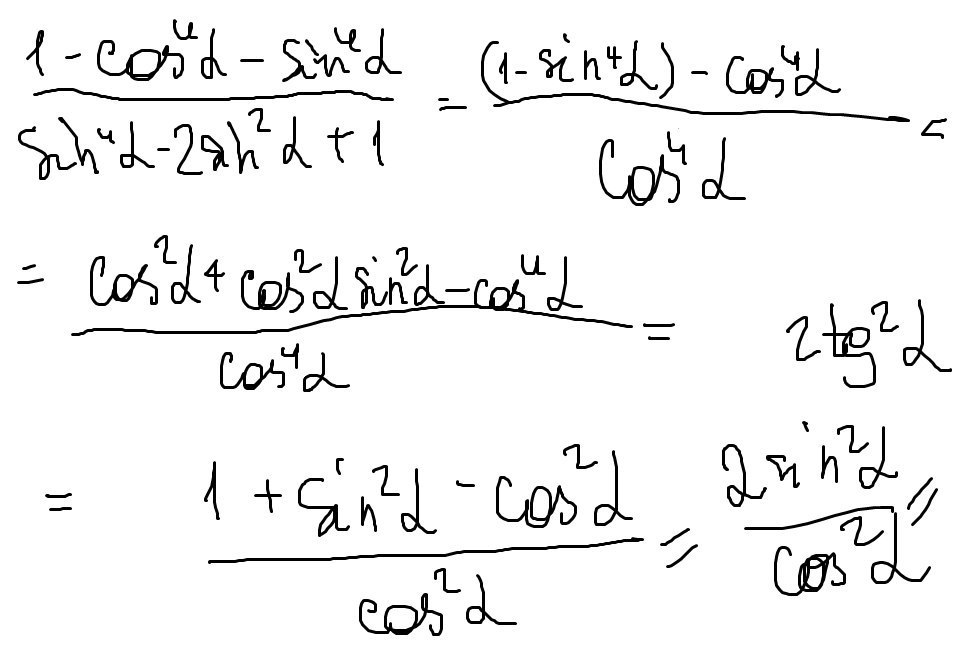 (1 - cos⁴α - sin⁴α)/(sin⁴α - 2sin²α + 1) = ((1 - sin⁴α) - cos⁴α)/(cos⁴α) =
= (cos²α + cos²α sin²α - cos⁴α)/(cos⁴α) =
= (1 + sin²α - cos²α)/(cos²α) = (2sin²α)/(cos²α) =
2tg²α